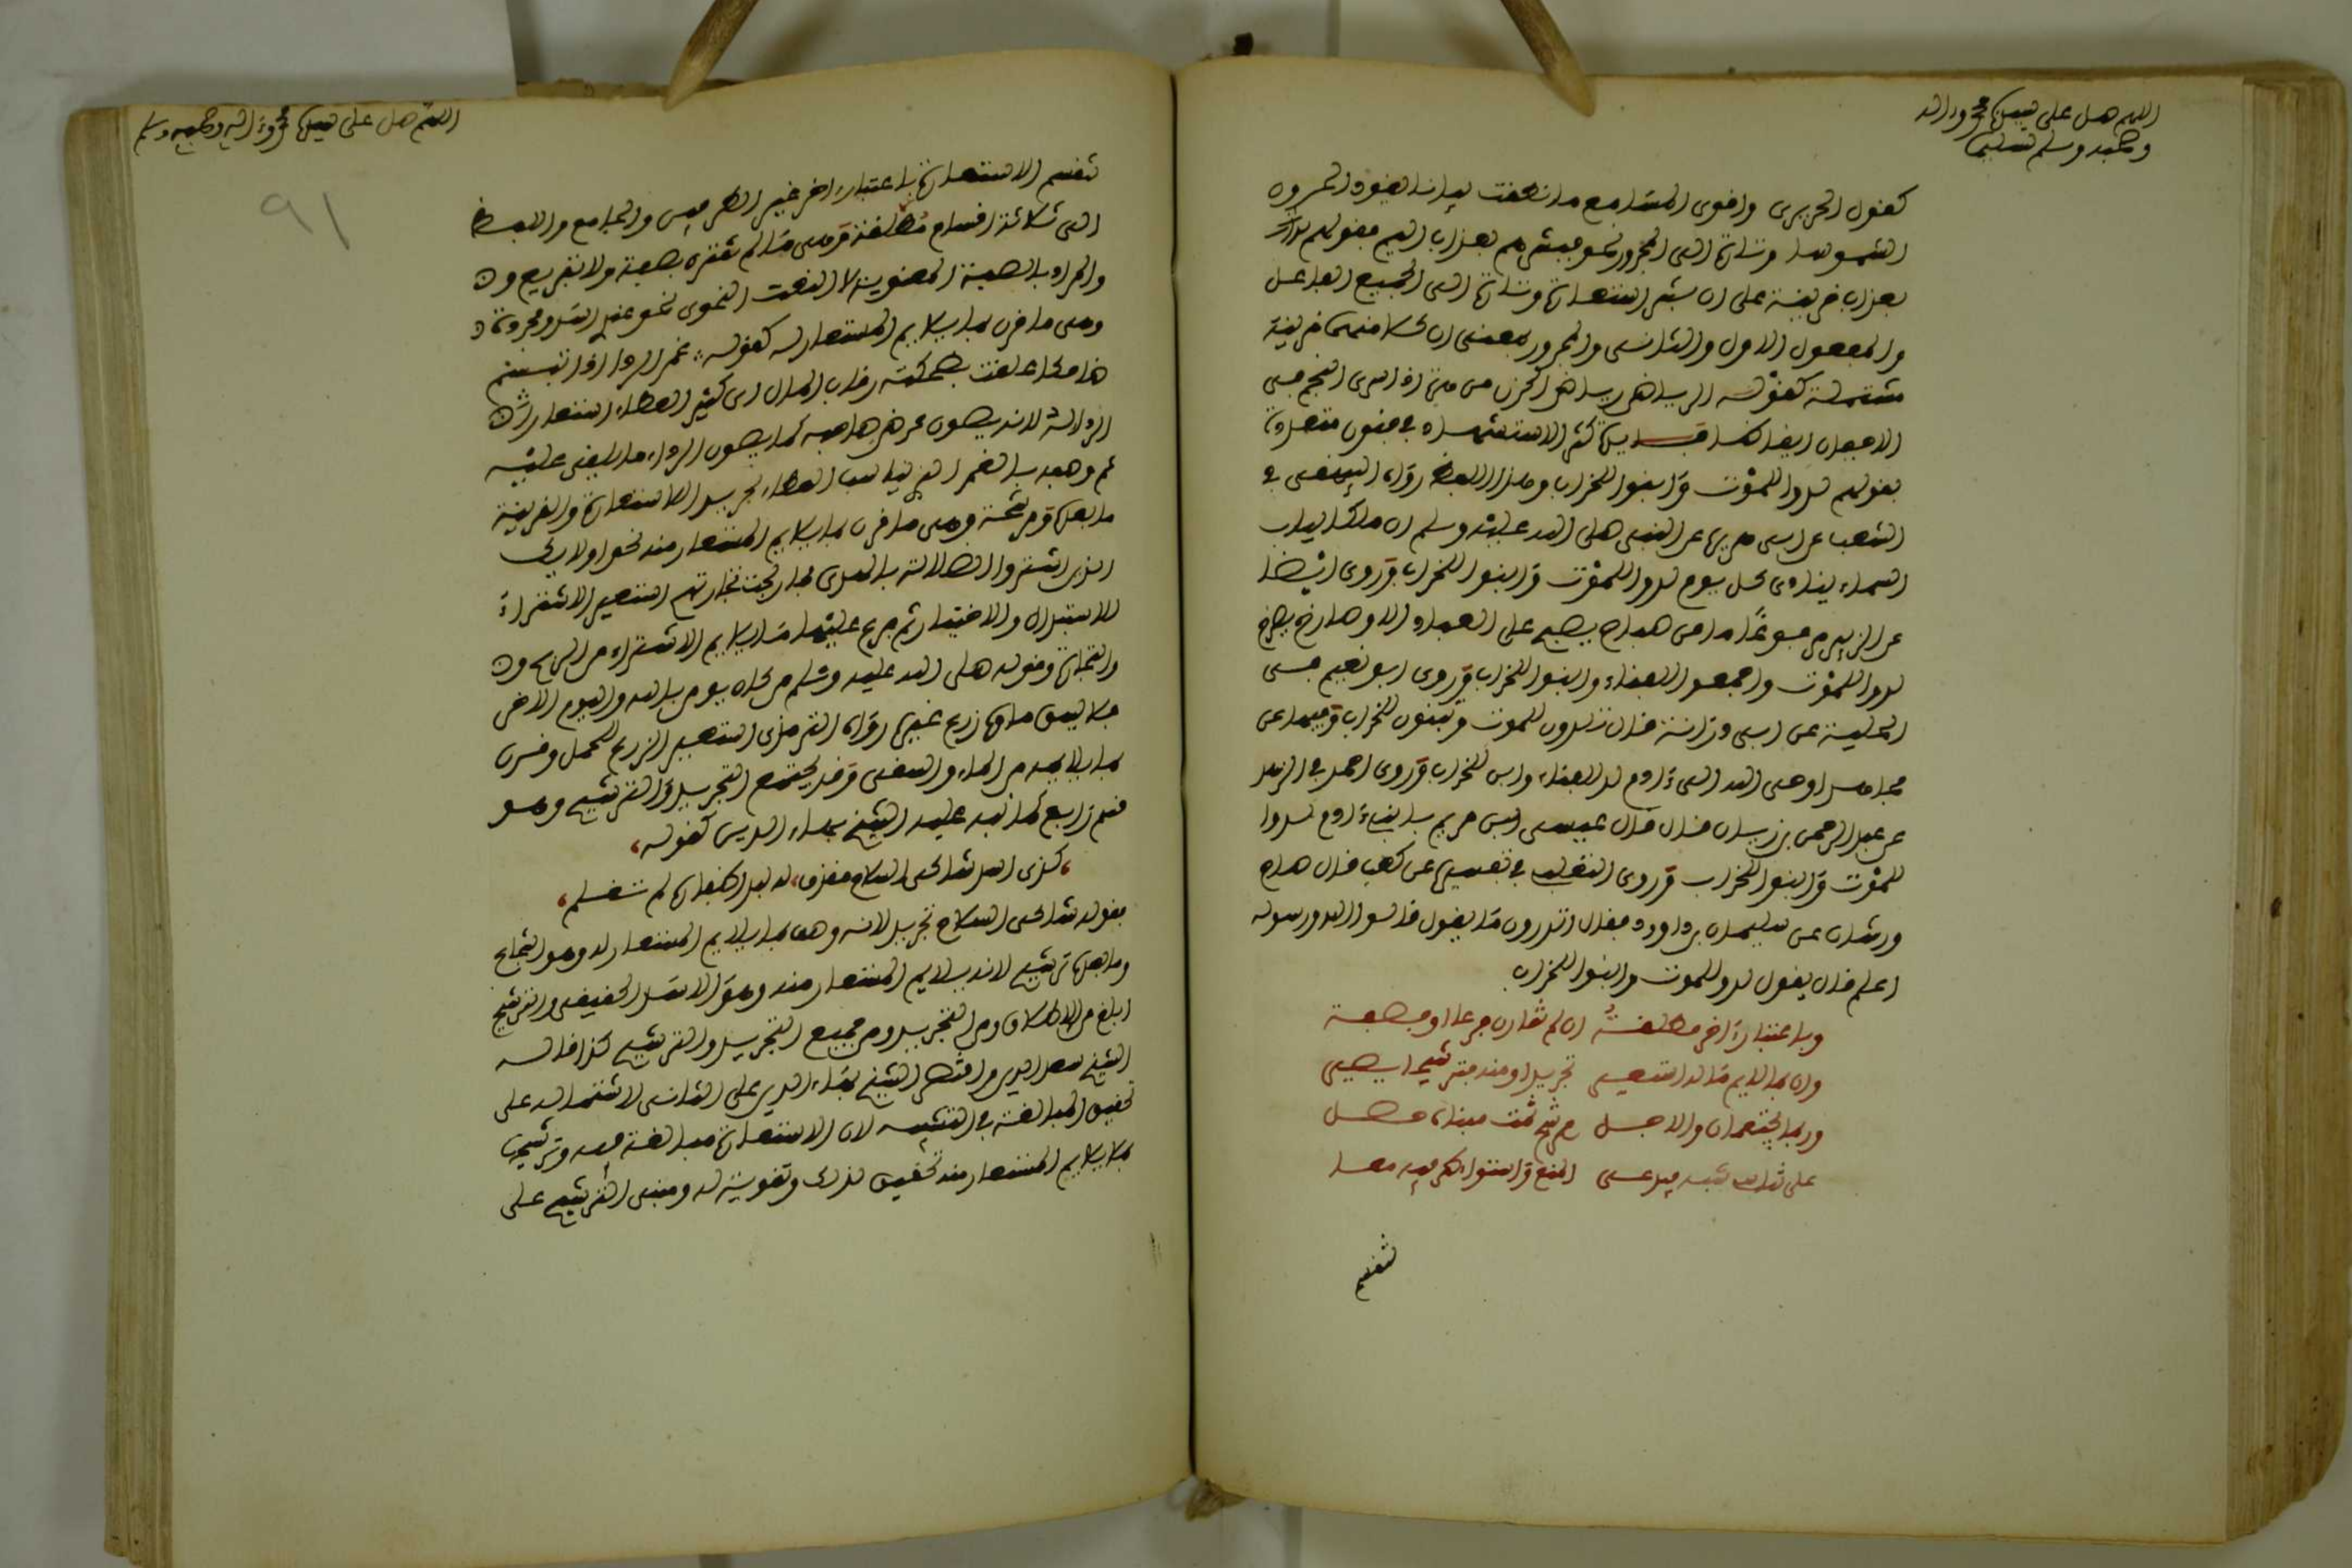 اللهم صل على سيدنا محمد وءاله
وصحبه وسلم تسليما
كقول الحريري واقرى المسامع اما نطقت بيانا يقود الحرون
الشموسا وتارة الى المجرور نحو فبشرهم بعذاب اليم فقولهم
بعذاب قرينة على ان بشر استعارة وتارة الى الجميع الفاعل
والمفعول الاول والثاني والمجرور بمعنى ان كلا منهما قرينة
مستقلة كقوله الرياح رياض الحزن من اذا سرى النوم في
الاجفان ايقاظا كثر الاستشهاد في فنون متعددة
بقولهم لدوا للموت وابنوا للخراب وهذا اللفظ رواه البيهقي في
الشعب عن ابي هريرة عن النبي صلى الله عليه وسلم ان ملكا بباب
السماء ينادي كل يوم لدوا للموت وابنوا للخراب وروى ايضا
عن الزبير مرفوعا ما من صباح يصبح على العباد الا وصارخ يصرخ
لدوا للموت واجمعوا للفناء وابنوا للخراب وروى ابو نعيم في
الحلية عن ابي ذر انه قال تلدون للموت وتبنون للخراب وفيها عن
مجاهد اوحى الله الى ءادم لد للفناء وابن للخراب وروى احمد في الزهد
عن عبد الرحمن بن زياد قال قال عيسى ابن مريم يا بني ءادم لدوا
للموت وابنوا للخراب وروى الثعلبي في تفسيره عن كعب قال صاح
ورشان عن سليمان بن داوود فقال اتدرون ما يقول قالوا الله ورسوله
اعلم قال يقول لدوا للموت وابنوا للخراب
وباعتبار ءاخر مطلقة ان لم تقارن فرعا او صفة
وان بما لايم ما له استعير تجريدا ومنه فترشيحا يصير
وربما يجتمعان والاجل مرشح ثمت مبناه حصل
على تناسي شبه فيدعى المنع واستواء طرفيه معا
تقسيم
اللهم صل على سيدنا محمد وءاله وصحبه وسلم
٩١
تقسم الاستعارة باعتبار ءاخر غير الطرفين والجامع واللفظ
الى ثلاثة اقسام مطلقة وهي ما لم تقترن بصفة ولا تفريع
والمراد بالصفة المعنوية لا النعت النحوي نحو عندي اسد ومجردة
وهي ما قرن بما يلايم المستعار له كقوله غمر الرداء اذا تبسم
ضاحكا غلقت بضحكته رقاب المال اي كثير العطاء استعار
الرداء له لانه يصون عرض صاحبه كما يصون الرداء ما يلقى عليه
ثم وصفه بالغمر الذي يناسب العطاء تجريدا للاستعارة والقرينة
ما بعده ومرشحة وهي ما قرن بما يلايم المستعار منه نحو اولايك
الذين اشتروا الضلالة بالهدى فما ربحت تجارتهم استعير الاشتراء
للاستبدال والاختيار ثم فرع عليهما ما يلايم الاشتراء من الربح
والتجارة وقوله صلى الله عليه وسلم من كان يومن بالله واليوم الاخر
فلا يسق ماؤه زرع غيره رواه الترمذي استعير الزرع للحمل وقرن
بما يلايمه من الماء والسقي وقد يجتمع التجريد والترشيح وهو
قسم رابع كما نبه عليه الشيخ بهاء الدين كقوله
لدى اسد شاكي السلاح مقذف له لبد اظفاره لم تقلم
فقوله شاكي السلاح تجريد لانه وصف بما يلايم المستعار له وهو الشجاع
وما بعده ترشيح لانه يلايم المستعار منه وهو الاسد الحقيقي والترشيح
ابلغ من الاطلاق ومن التجريد ومن جميع التجريد والترشيح كذا قاله
الشيخ سعد الدين واقتصر الشيخ بهاء الدين على الثاني لاشتماله على
تحقيق المبالغة في التشبيه لان الاستعارة مبالغة فيه وترشيحها
بما يلايم المستعار منه تحقيق لذلك وتقوية له ومبنى الترشيح على